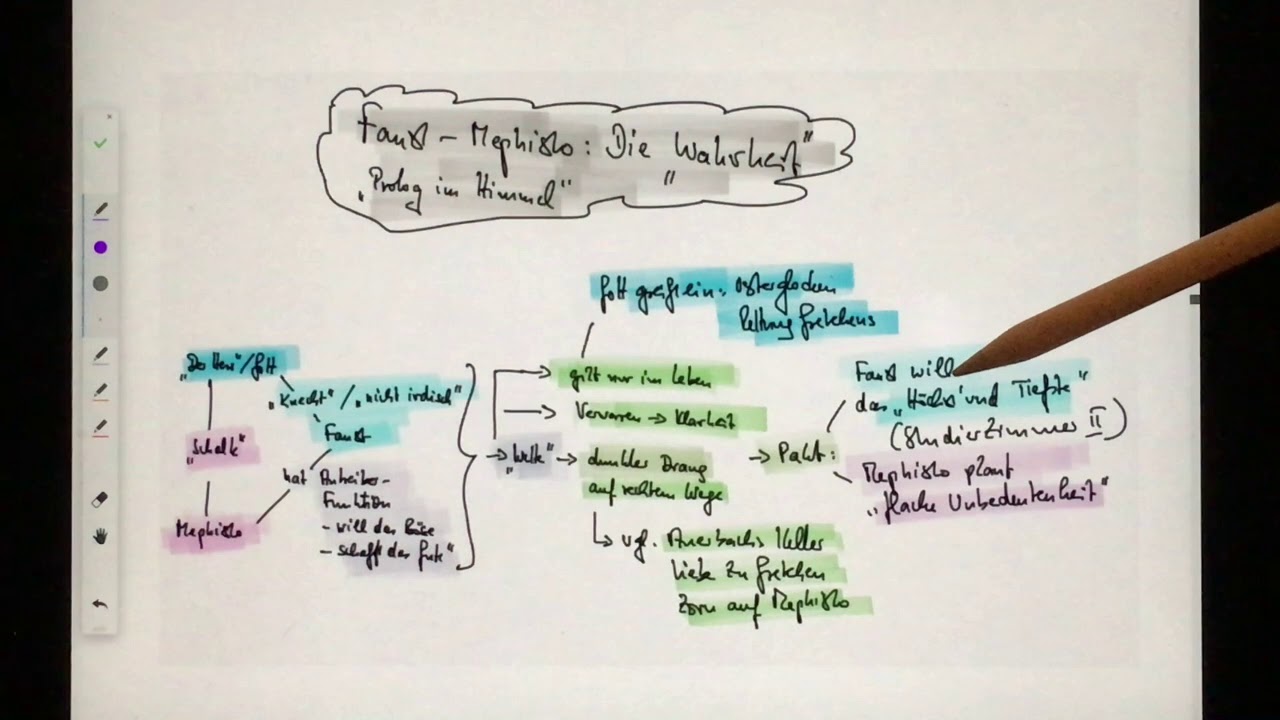 Faust – Mephisto: Die Wahrheit"
„Prolog im Himmel" "
Gott greift ein: Osterglocken
Rettung Gretchens
„Der Herr"/Gott
„Knecht"/„nicht irdisch"
Faust
„Schalk"
hat Antreiber-
Funktion
– will das Böse
– schafft das Gute"
Mephisto
→ „Wette" →
gilt nur im Leben
Verworren → Klarheit
dunkler Drang
auf rechtem Wege
↳ vgl. Auerbachs Keller
Liebe zu Gretchen
Zorn auf Mephisto
→ Pakt:
Faust will
das „Höchst' und Tiefste"
(Studierzimmer II)
Mephisto plant
„flache Unbedeutenheit"